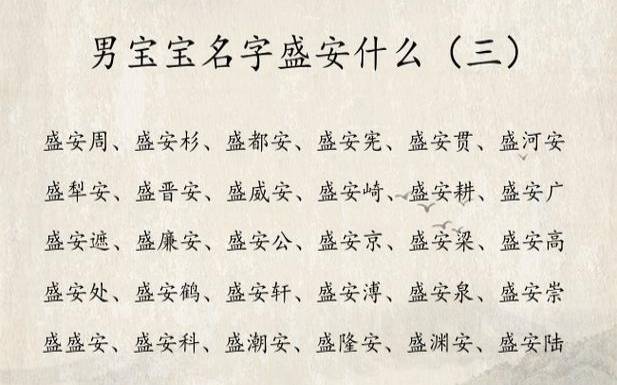 男宝宝名字盛安什么（三）
盛安周、盛安杉、盛都安、盛安宪、盛安贯、盛河安
盛犁安、盛晋安、盛威安、盛安崎、盛安耕、盛安广
盛安遮、盛廉安、盛安公、盛安京、盛安梁、盛安高
盛安处、盛安鹤、盛安轩、盛安溥、盛安泉、盛安崇
盛盛安、盛安科、盛潮安、盛隆安、盛渊安、盛安陆